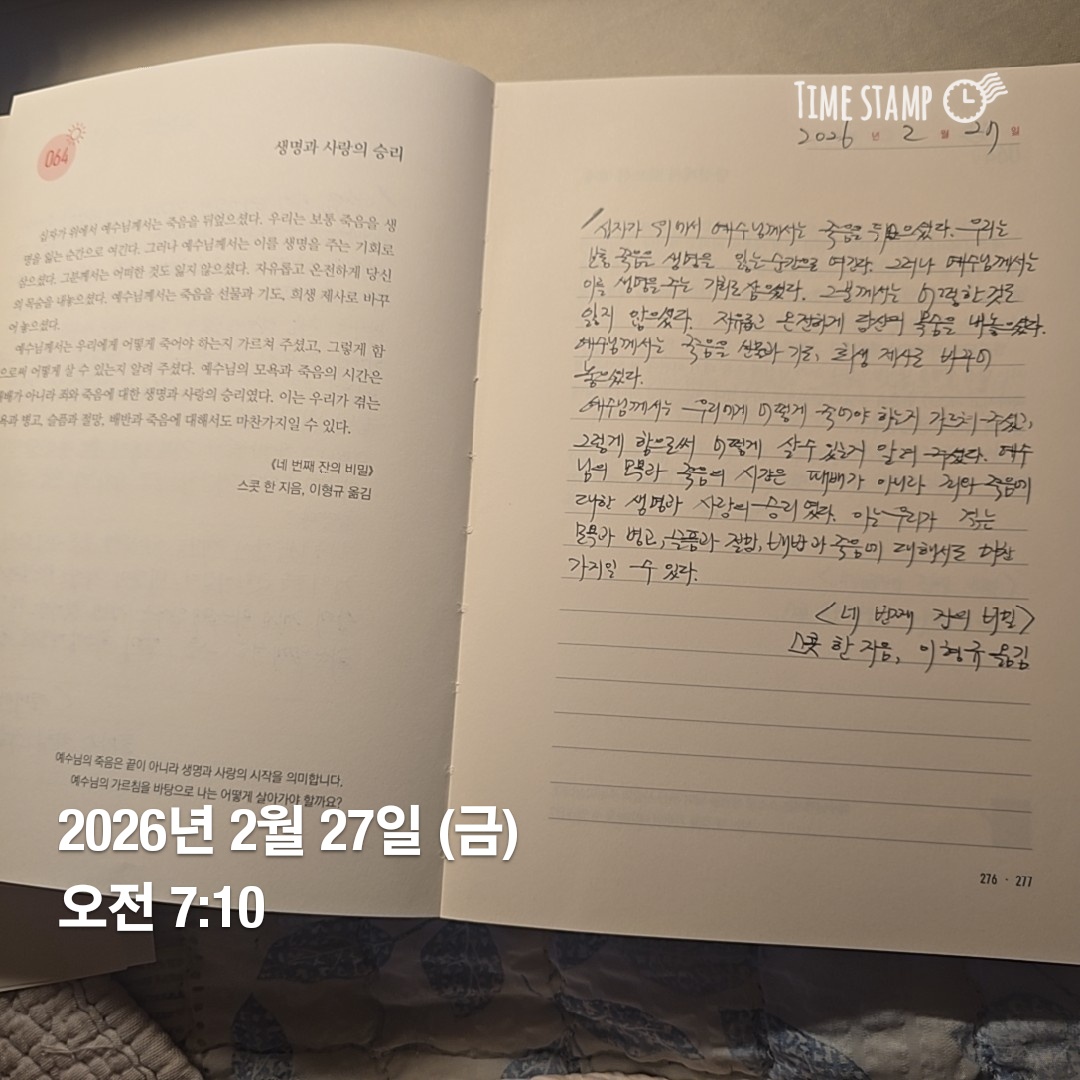 064
생명과 사랑의 승리
십자가 위에서 예수님께서는 죽음을 뒤엎으셨다. 우리는 보통 죽음을 생
명을 잃는 순간으로 여긴다. 그러나 예수님께서는 이를 생명을 주는 기회로
삼으셨다. 그분께서는 어떠한 것도 잃지 않으셨다. 자유롭고 온전하게 당신
의 목숨을 내놓으셨다. 예수님께서는 죽음을 선물과 기도, 희생 제사로 바꾸
어 놓으셨다.
예수님께서는 우리에게 어떻게 죽어야 하는지 가르쳐 주셨고, 그렇게 함
으로써 어떻게 살 수 있는지 알려 주셨다. 예수님의 모욕과 죽음의 시간은
패배가 아니라 죄와 죽음에 대한 생명과 사랑의 승리였다. 이는 우리가 겪는
모욕과 병고, 슬픔과 절망, 배반과 죽음에 대해서도 마찬가지일 수 있다.
《네 번째 잔의 비밀》
스콧 한 지음, 이형규 옮김
예수님의 죽음은 끝이 아니라 생명과 사랑의 시작을 의미합니다.
예수님의 가르침을 바탕으로 나는 어떻게 살아가야 할까요?
TIME STAMP
2026 년 2 월 27 일
십자가 위에서 예수님께서는 죽음을 뒤엎으셨다. 우리는
보통 죽음을 생명을 잃는 순간으로 여긴다. 그러나 예수님께서는
이를 생명을 주는 기회로 삼으셨다. 그분께서는 어떻한 것도
잃지 않으셨다. 자유롭고 온전하게 당신의 목숨을 내놓으셨다.
예수님께서는 죽음을 선물과 기도, 희생 제사로 바꾸어
놓으셨다.
예수님께서는 우리에게 어떻게 죽어야 하는지 가르쳐 주셨고,
그렇게 함으로써 어떻게 살 수 있는지 알려 주셨다. 예수
님의 모욕과 죽음의 시간은 패배가 아니라 죄와 죽음에
대한 생명과 사랑의 승리였다. 이는 우리가 겪는
모욕과 병고, 슬픔과 절망, 배반과 죽음에 대해서도 마찬
가지일 수 있다.
<네 번째 잔의 비밀>
스콧 한 지음, 이형규 옮김
276 · 277
2026년 2월 27일 (금)
오전 7:10